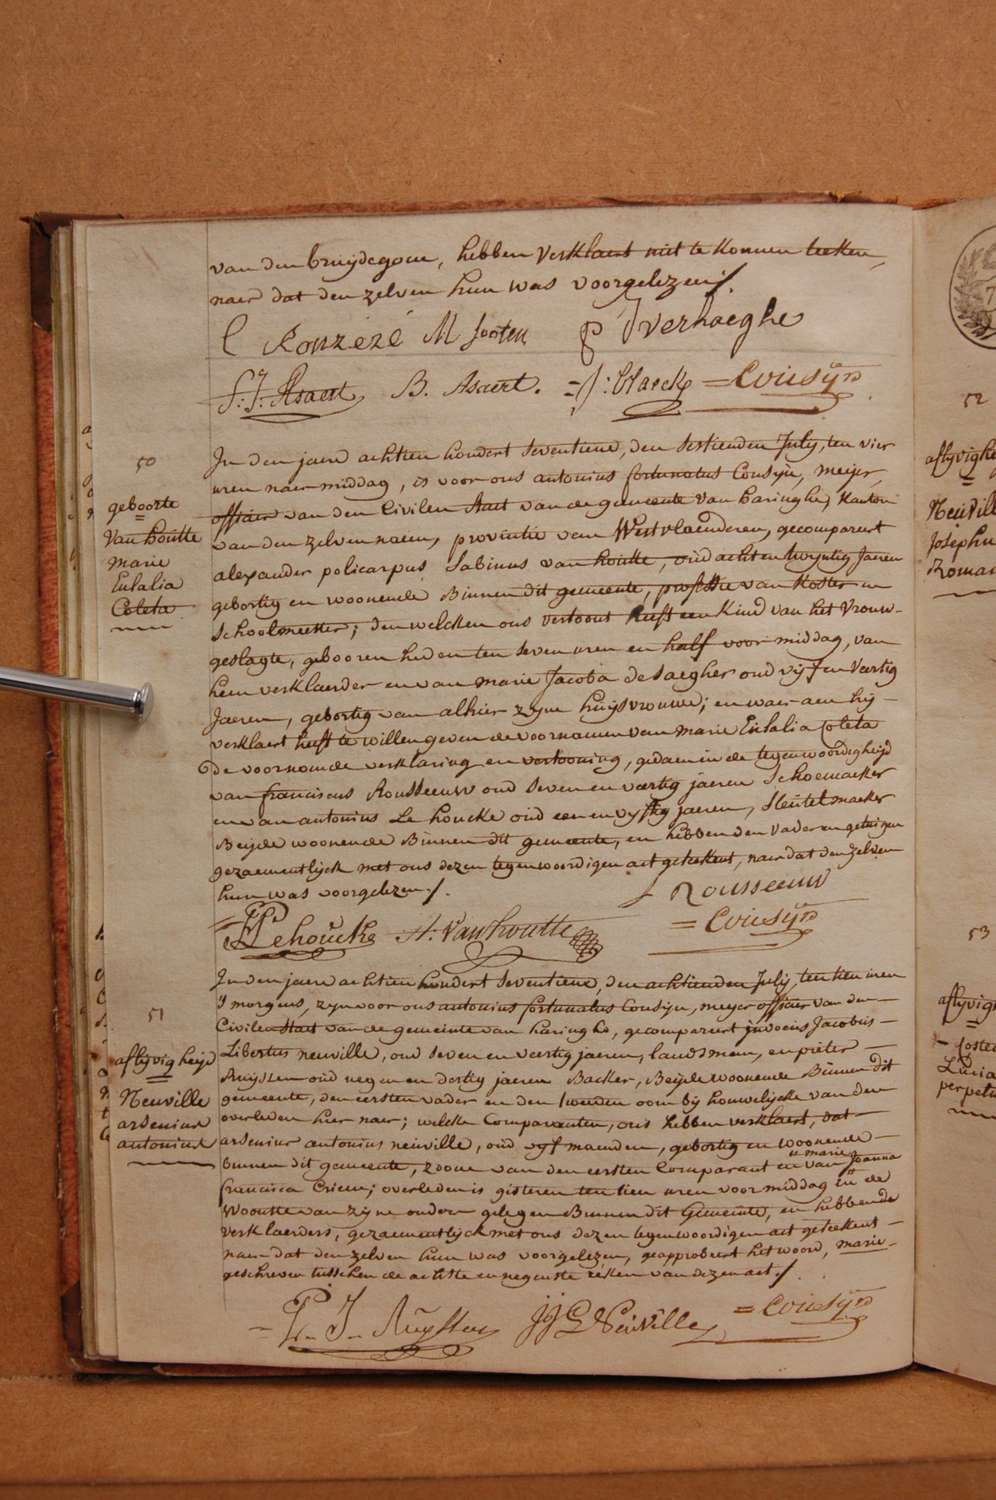 van den bruijdegom, hebben verklaert niet te konnen teeken,
naer dat den zelven hun was voorgelezen ./.
C Ronzezé M sooten P J verhaeghe
S: J: Asaert B. Asaert. =J: Claeck =Cousÿn
50
geboorte
Van houtte
marie
Eulalia
Coleta
In den jaere achtien hondert seventiene, den sestienden July, ten vier
uren naer middag, is voor ons antonius fortunatus Cousijn, meijer,
officier van den Civilen Staet van de gemeente van haringhe, kanton
van den zelven naem, provintie van Westvlaenderen, gecompareert
alexander policarpus Sabinus van houtte, oud acht en twyntig Jaeren
gebortig en woonende Binnen dit gemeente, professie van Koster en
Schoolmeester; den welcken ons vertoont heeft een Kind van het Vrouw-
geslagte, gebooren heden ten seven uren en half voor middag, van
hem verklaerder en van marie Jacoba de saegher oud vijf en veertig
Jaeren, gebortig van alhier zyne huijsvrouwe; en waer aen hij
verklaert heeft te willen geven de voornaemen van marie Eulalia Coleta
De voornoemde verklaring en vertooning, gedaen in de tegenwoordigheijd
van franciscus Rousseeuw oud seven en veertig jaeren Schoemaeker
en van antonius Le houcke oud een en vyftig jaeren, Sleutelmaeker
Beijde woonende Binnen dit gemeente, en hebben den vader en getuigen
gezaementlijck met ons dezen tegenwoordigen act geteekent, naer dat den zelven
hun was voorgelezen ./.
Rousseeuw
Lehoucke A: Vanhoutte =Cousÿn
51
aflijvigheijd
Neuville
arsenius
antonius
In den jaere achtien hondert seventiene, den achtienden July, ten tien uren
S morgens, zyn voor ons antonius fortunatus Cousyn, meijer officier van den
Civilen Staet van de gemeente van haringhe, gecompareert Jacobus
Libertus neuville, oud seven en veertig jaeren, landsman, en pieter
Ruijssen oud negen en dertig jaeren Backer, Beijde woonende Binnen dit
gemeente, den eersten vader en den tweeden oom bij houwelijcke van den
overleden hier naer; welcke Comparanten, ons hebben verklaert, dat
arsenius antonius neuville, oud vyf maenden, gebortig en woonende
binnen dit gemeente, zoone van den eersten Comparant en van marie Joanna
francisca Crien; overleden is gisteren ten tien uren voor middag in de
Woonste van zijne ouders gelegen Binnen dit Gemeente, en hebben de
verklaerders, gezaementlyck met ons dezen tegenwoordigen act geteekent
naer dat den zelven hun was voorgelezen, geapprobeert het woord, marie
geschreven tusschen de achtste en negenste reken van dezen act ./.
P. J. Ruyssen J J L Neuville =Cousÿn
52
aflyvighe
Neuville
Josephu
Roman
53
aflyvigh
Coste
Lucia
perpetu